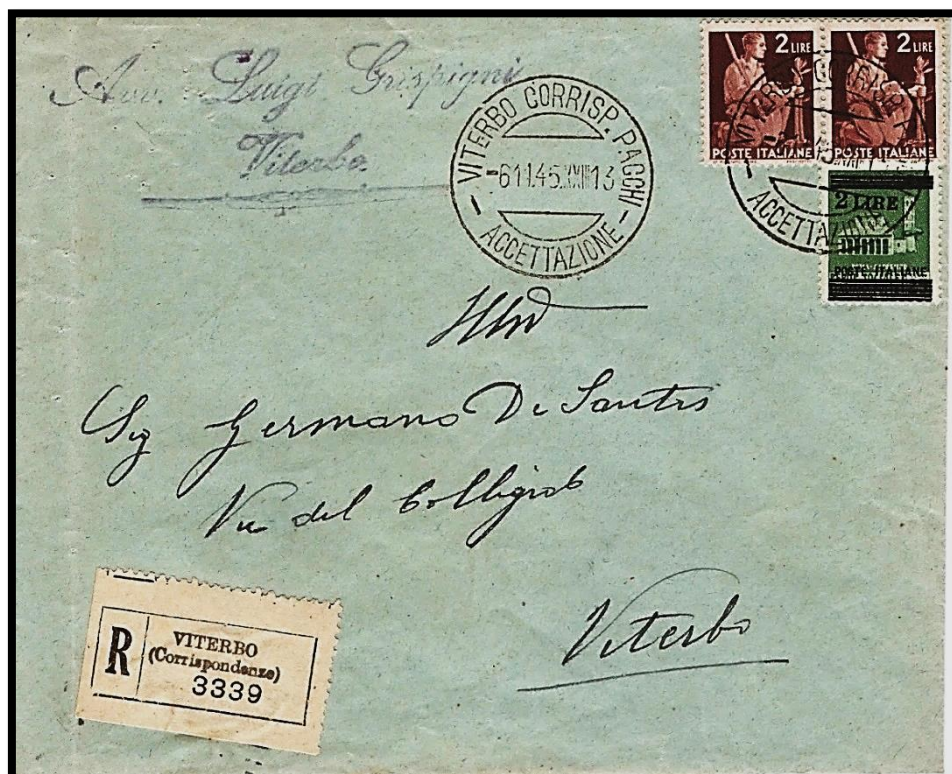 Avv. Luigi Grispigni
Viterbo
VITERBO CORRISP. PACCHI
-6 11.45.XXIII 13
- ACCETTAZIONE -
2 LIRE
POSTE ITALIANE
2 LIRE
POSTE ITALIANE
2 LIRE
POSTE ITALIANE
ACCETTAZIONE
Sig Germano De Santis
Via del
Viterbo
R
VITERBO
(Corrispondenze)
3339